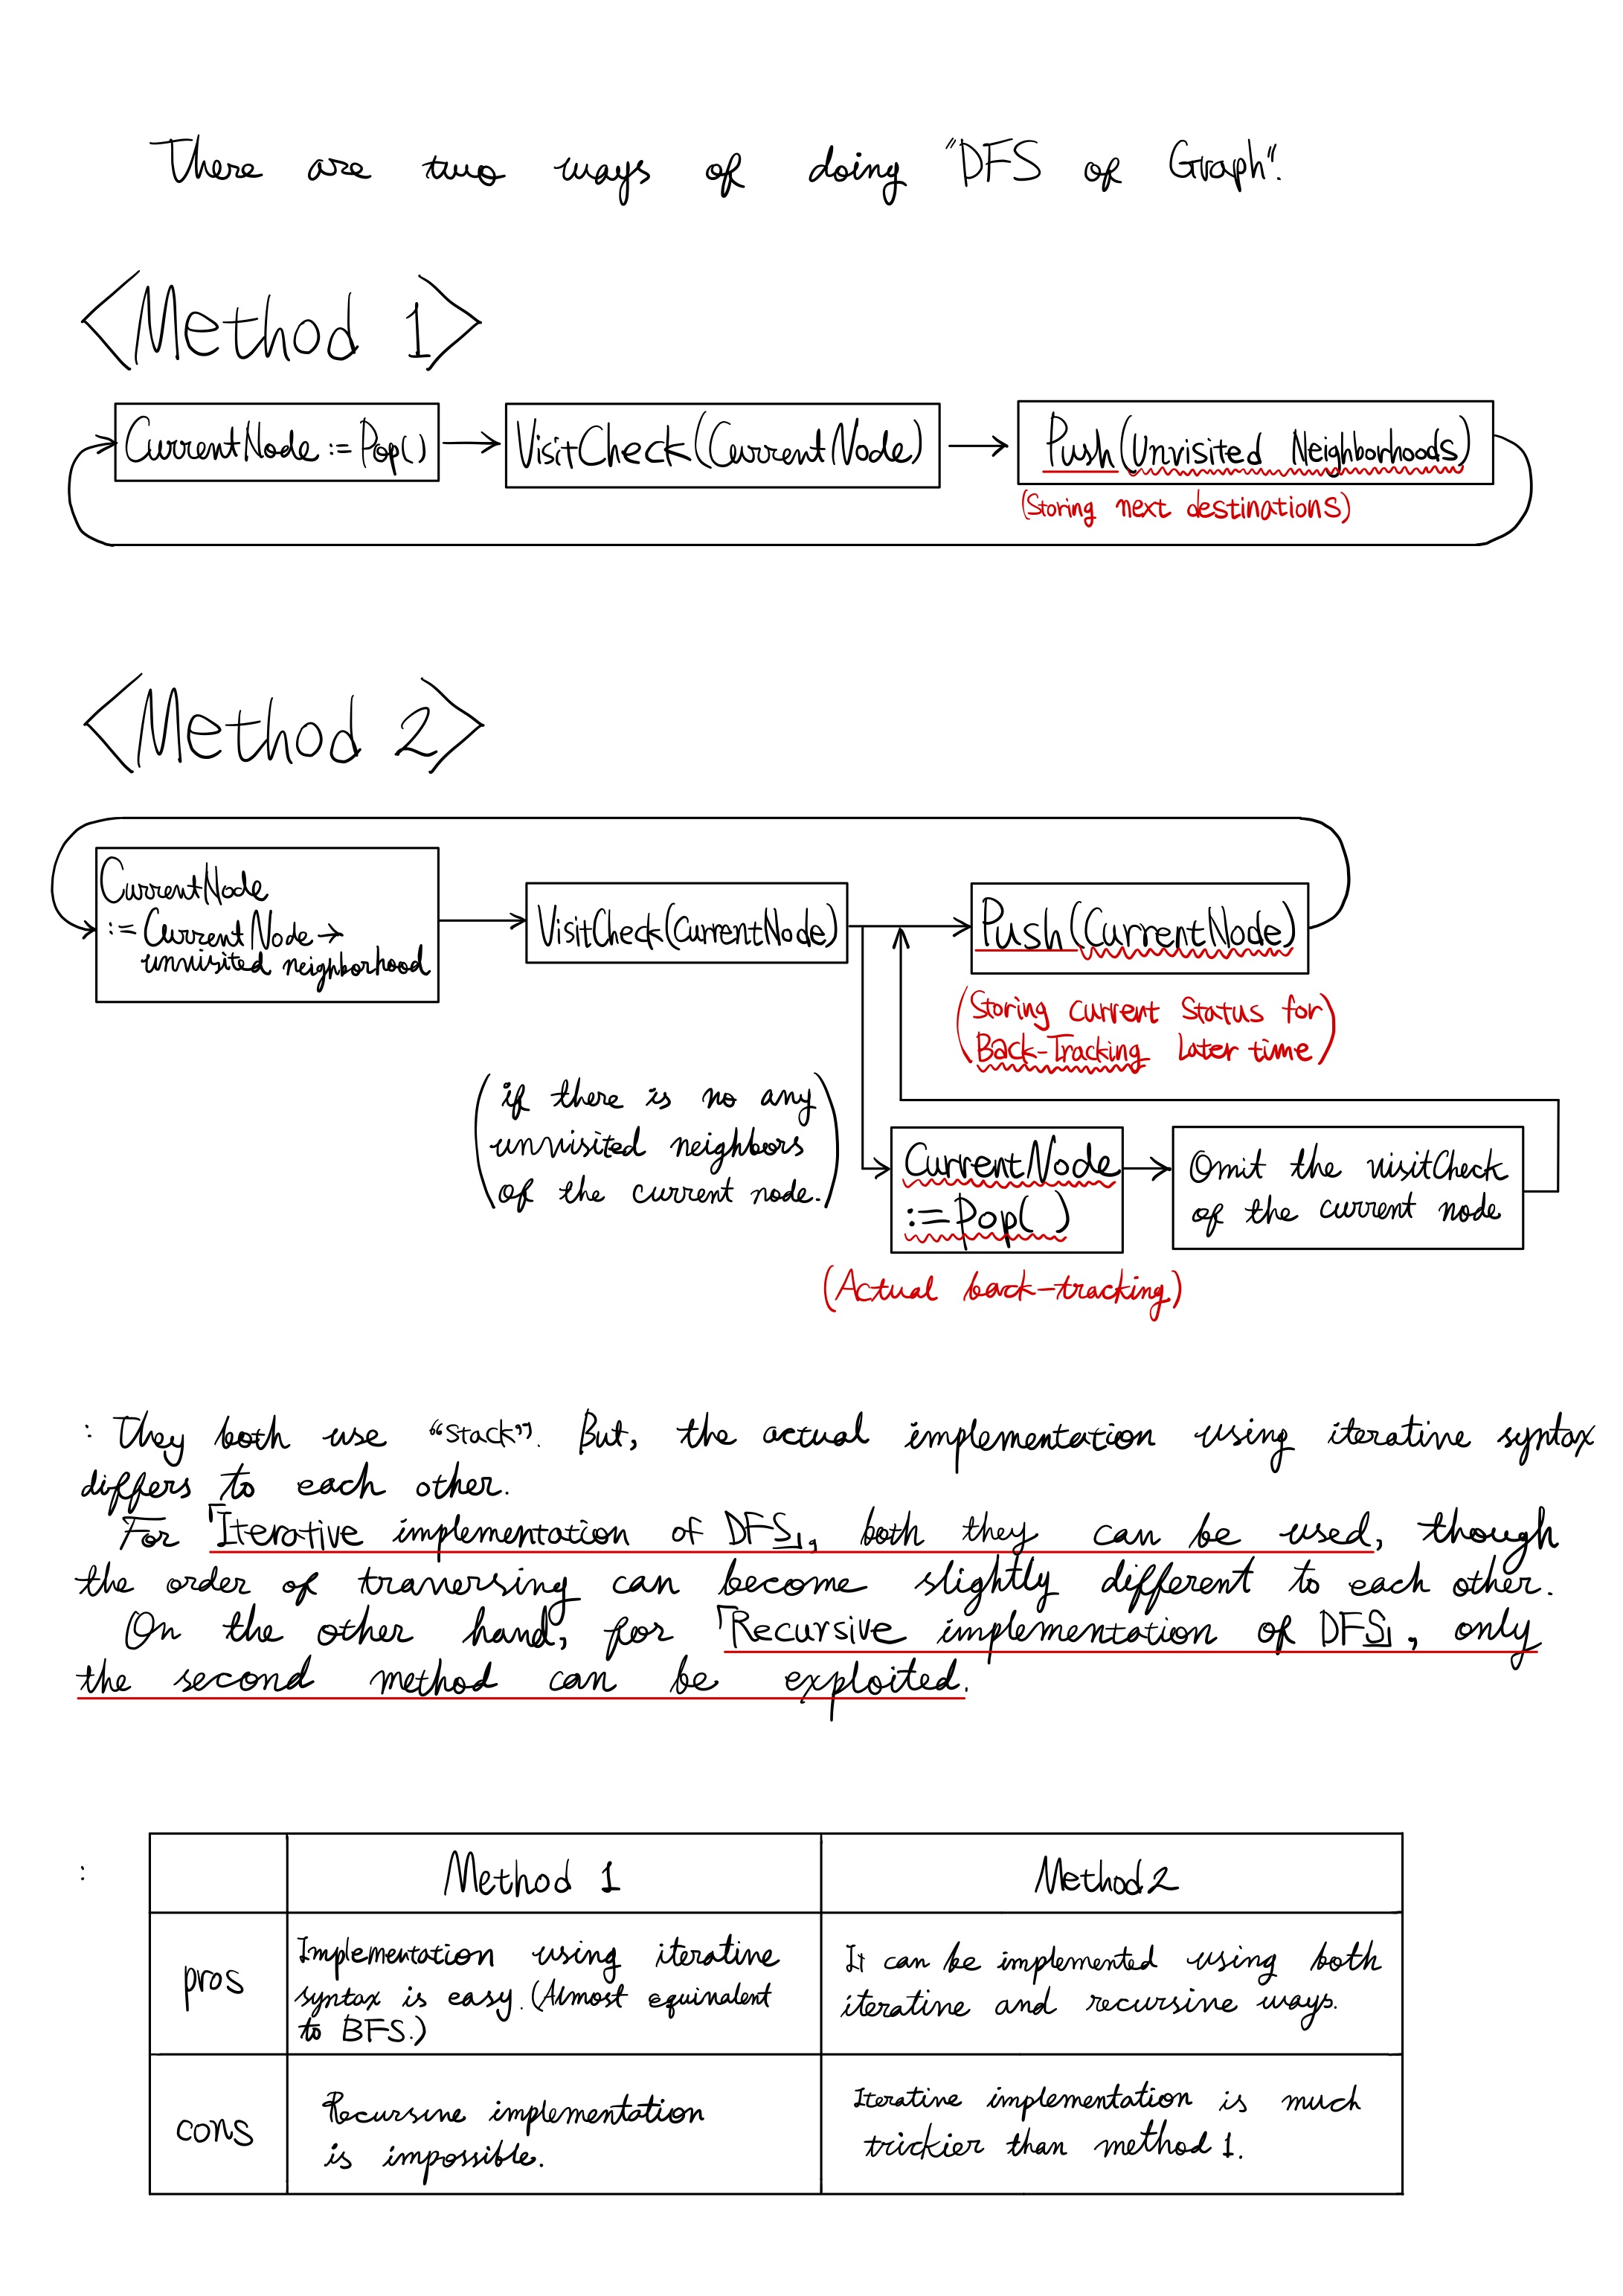 There are two ways of doing "DFS of Graph".
<Method 1>
CurrentNode := Pop()
VisitCheck(CurrentNode)
Push(Unvisited Neighborhoods)
(Storing next destinations)
<Method 2>
CurrentNode
:= CurrentNode →
unvisited neighborhood
VisitCheck(CurrentNode)
Push(CurrentNode)
(Storing current Status for
Back-Tracking Later time)
(if there is no any
unvisited neighbors
of the current node.)
CurrentNode
:= Pop( )
Omit the visitCheck
of the current node
(Actual back-tracking)
: They both use “Stack”. But, the actual implementation using iterative syntax
differs to each other.
For 「Iterative implementation of DFS」, both they can be used, though
the order of traversing can become slightly different to each other.
On the other hand, for 「Recursive implementation of DFS」, only
the second method can be exploited.
:
Method 1
Method 2
pros
Implementation using iterative
syntax is easy. (Almost equivalent
to BFS.)
It can be implemented using both
iterative and recursive ways.
cons
Recursive implementation
is impossible.
Iterative implementation is much
trickier than method 1.